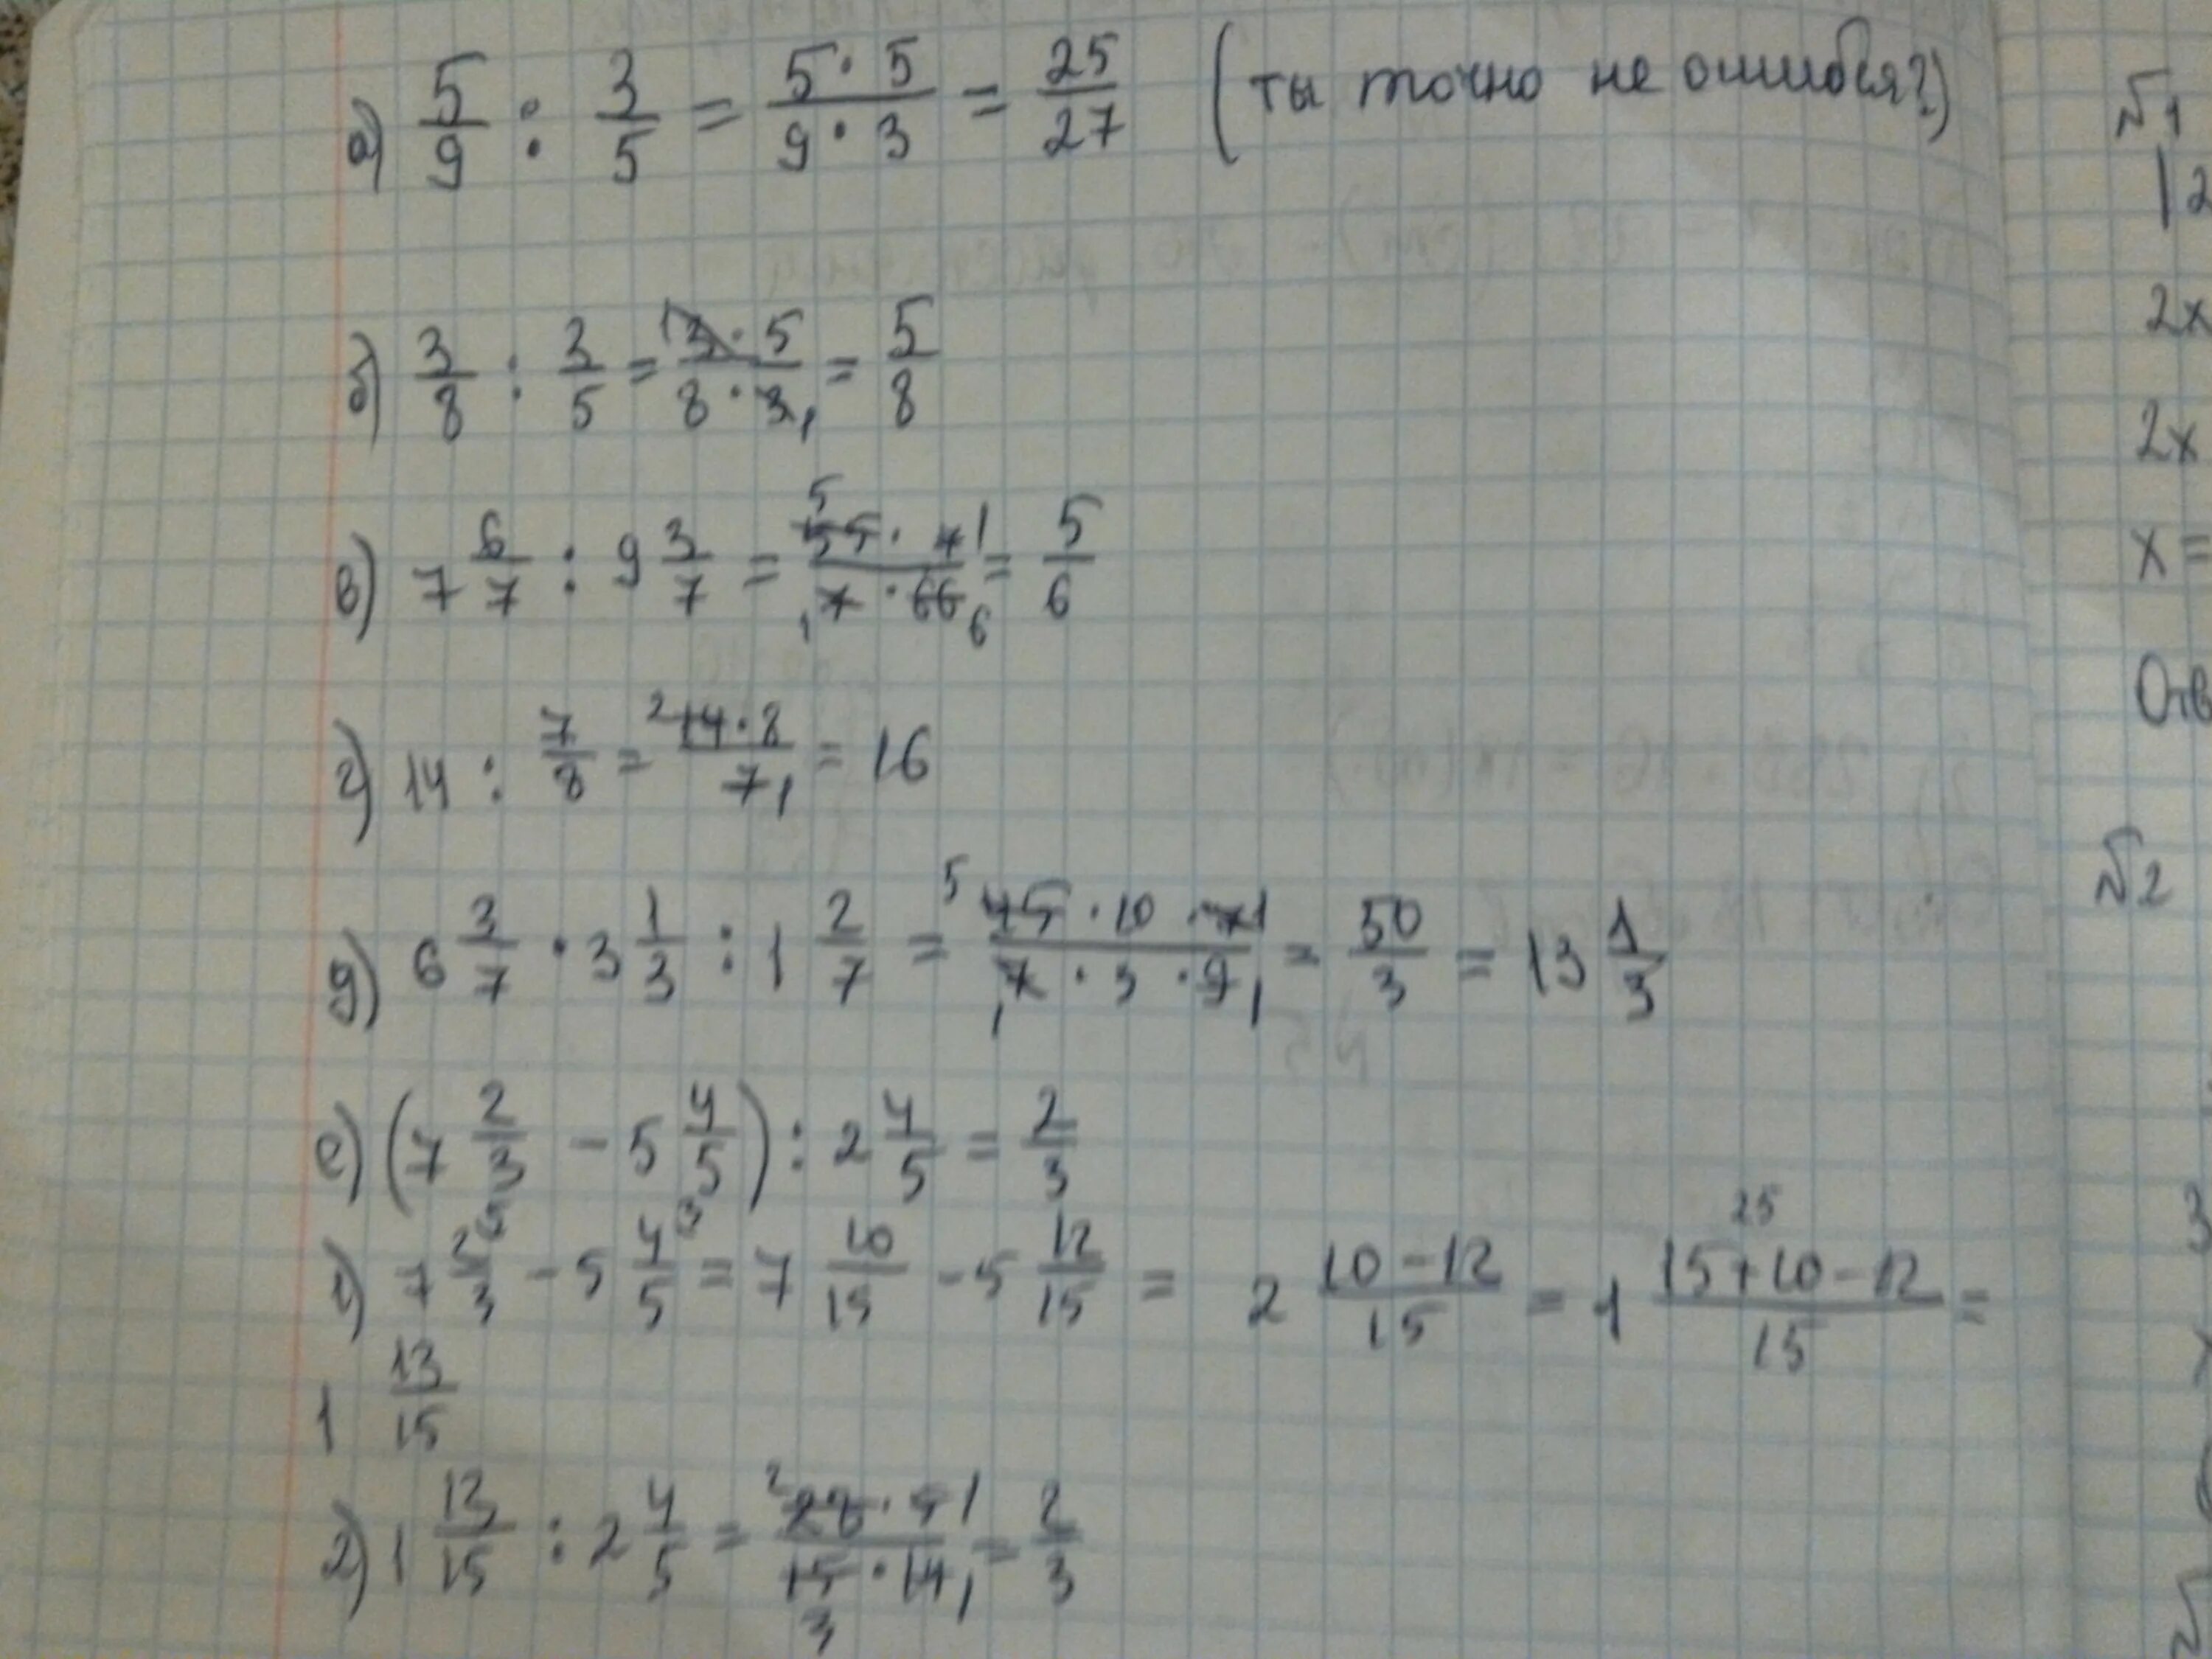 а) 5/9 : 3/5 = 5·5/9·3 = 25/27 (ты точно не ошибся?)
б) 3/8 : 3/5 = 3·5/8·3 = 5/8
в) 7 6/7 : 9 3/7 = 55·7/7·66 = 5/6
г) 14 : 7/8 = 14·8/7 = 16
д) 6 3/7 · 3 1/3 : 1 2/7 = 45·10·7/7·3·9 = 50/3 = 13 1/3
е) (7 2/3 - 5 4/5) : 2 4/5 = 2/3
1) 7 2/3 - 5 4/5 = 7 10/15 - 5 12/15 = 2 10-12/15 = 1 15+10-12/15 =
1 13/15
2) 1 13/15 : 2 4/5 = 28·5/15·14 = 2/3
№1
12
2x
2x
x =
Отв
№2
3